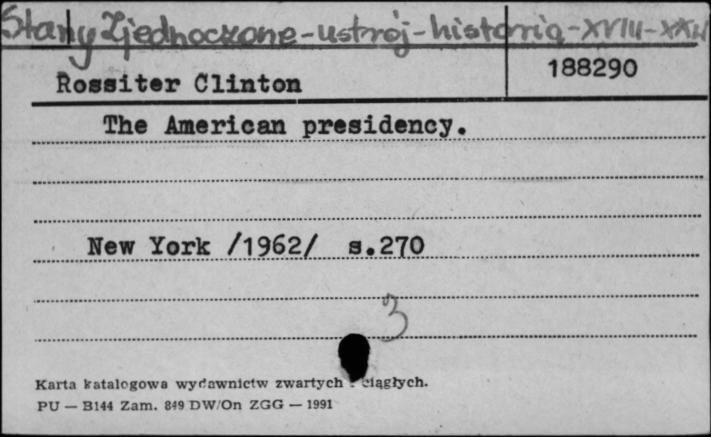 Stany Zjednoczone-ustrój-historia-XVIII-XXw
188290
Rossiter Clinton
The American presidency.
New York /1962/ s.270
3
Karta katalogowa wydawnictw zwartych i ciągłych.
PU — B144 Zam. 849 DW/On ZGG — 1991